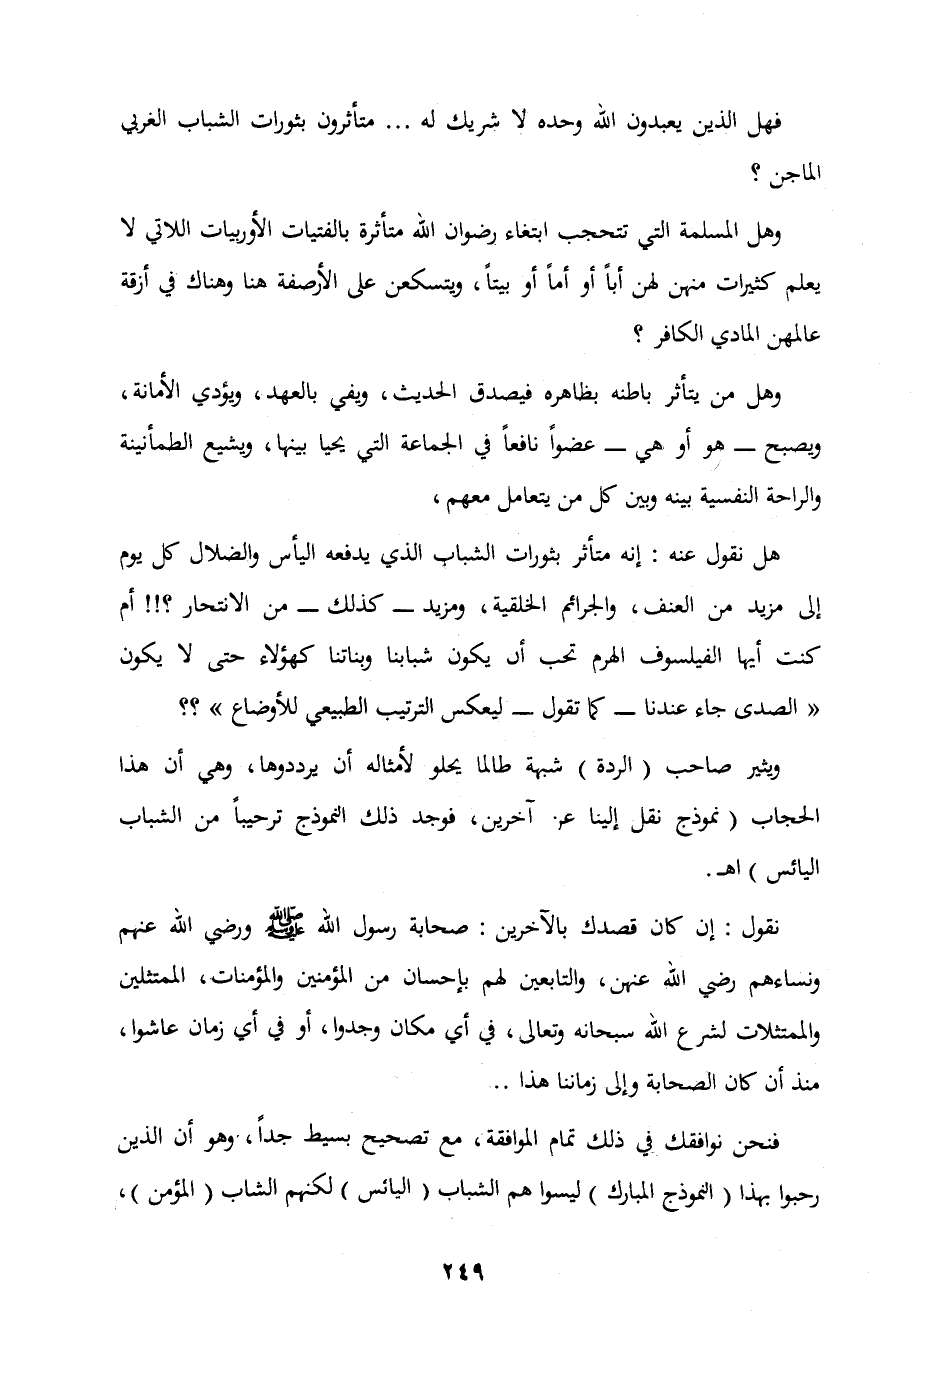 فهل الذين يعبدون الله وحده لا شريك له ... متأثرون بثورات الشباب الغربي
الماجن ؟
وهل المسلمة التي تتحجب ابتغاء رضوان الله متأثرة بالفتيات الأوربيات اللاتي لا
يعلم كثيرات منهن لهن أباً أو أماً أو بيتاً ، ويتسكعن على الأرصفة هنا وهناك في أزقة
عالمهن المادي الكافر ؟
وهل من يتأثر باطنه بظاهره فيصدق الحديث ، ويفي بالعهد ، ويؤدي الأمانة ،
ويصبح ــ هو أو هي ــ عضواً نافعاً في الجماعة التي يحيا بينها ، ويشيع الطمأنينة
والراحة النفسية بينه وبين كل من يتعامل معهم ،
هل نقول عنه : إنه متأثر بثورات الشباب الذي يدفعه اليأس والضلال كل يوم
إلى مزيد من العنف ، والجرائم الخلقية ، ومزيد ــ كذلك ــ من الانتحار ؟!! أم
كنت أيها الفيلسوف الهرم تحب أن يكون شبابنا وبناتنا كهؤلاء حتى لا يكون
« الصدى جاء عندنا ــ كما تقول ــ ليعكس الترتيب الطبيعي للأوضاع » ؟؟
ويثير صاحب ( الردة ) شبهة طالما يحلو لأمثاله أن يرددوها ، وهي أن هذا
الحجاب ( نموذج نقل إلينا عن آخرين ، فوجد ذلك النموذج ترحيباً من الشباب
اليائس ) اهـ .
نقول : إن كان قصدك بالآخرين : صحابة رسول الله ﷺ ورضي الله عنهم
ونساءهم رضي الله عنهن ، والتابعين لهم بإحسان من المؤمنين والمؤمنات ، الممتثلين
والممتثلات لشرع الله سبحانه وتعالى ، في أي مكان وجدوا ، أو في أي زمان عاشوا ،
منذ أن كان الصحابة وإلى زماننا هذا ..
فنحن نوافقك في ذلك تمام الموافقة ، مع تصحيح بسيط جداً ، وهو أن الذين
رحبوا بهذا ( النموذج المبارك ) ليسوا هم الشباب ( اليائس ) لكنهم الشاب ( المؤمن ) ،
٢٤٩